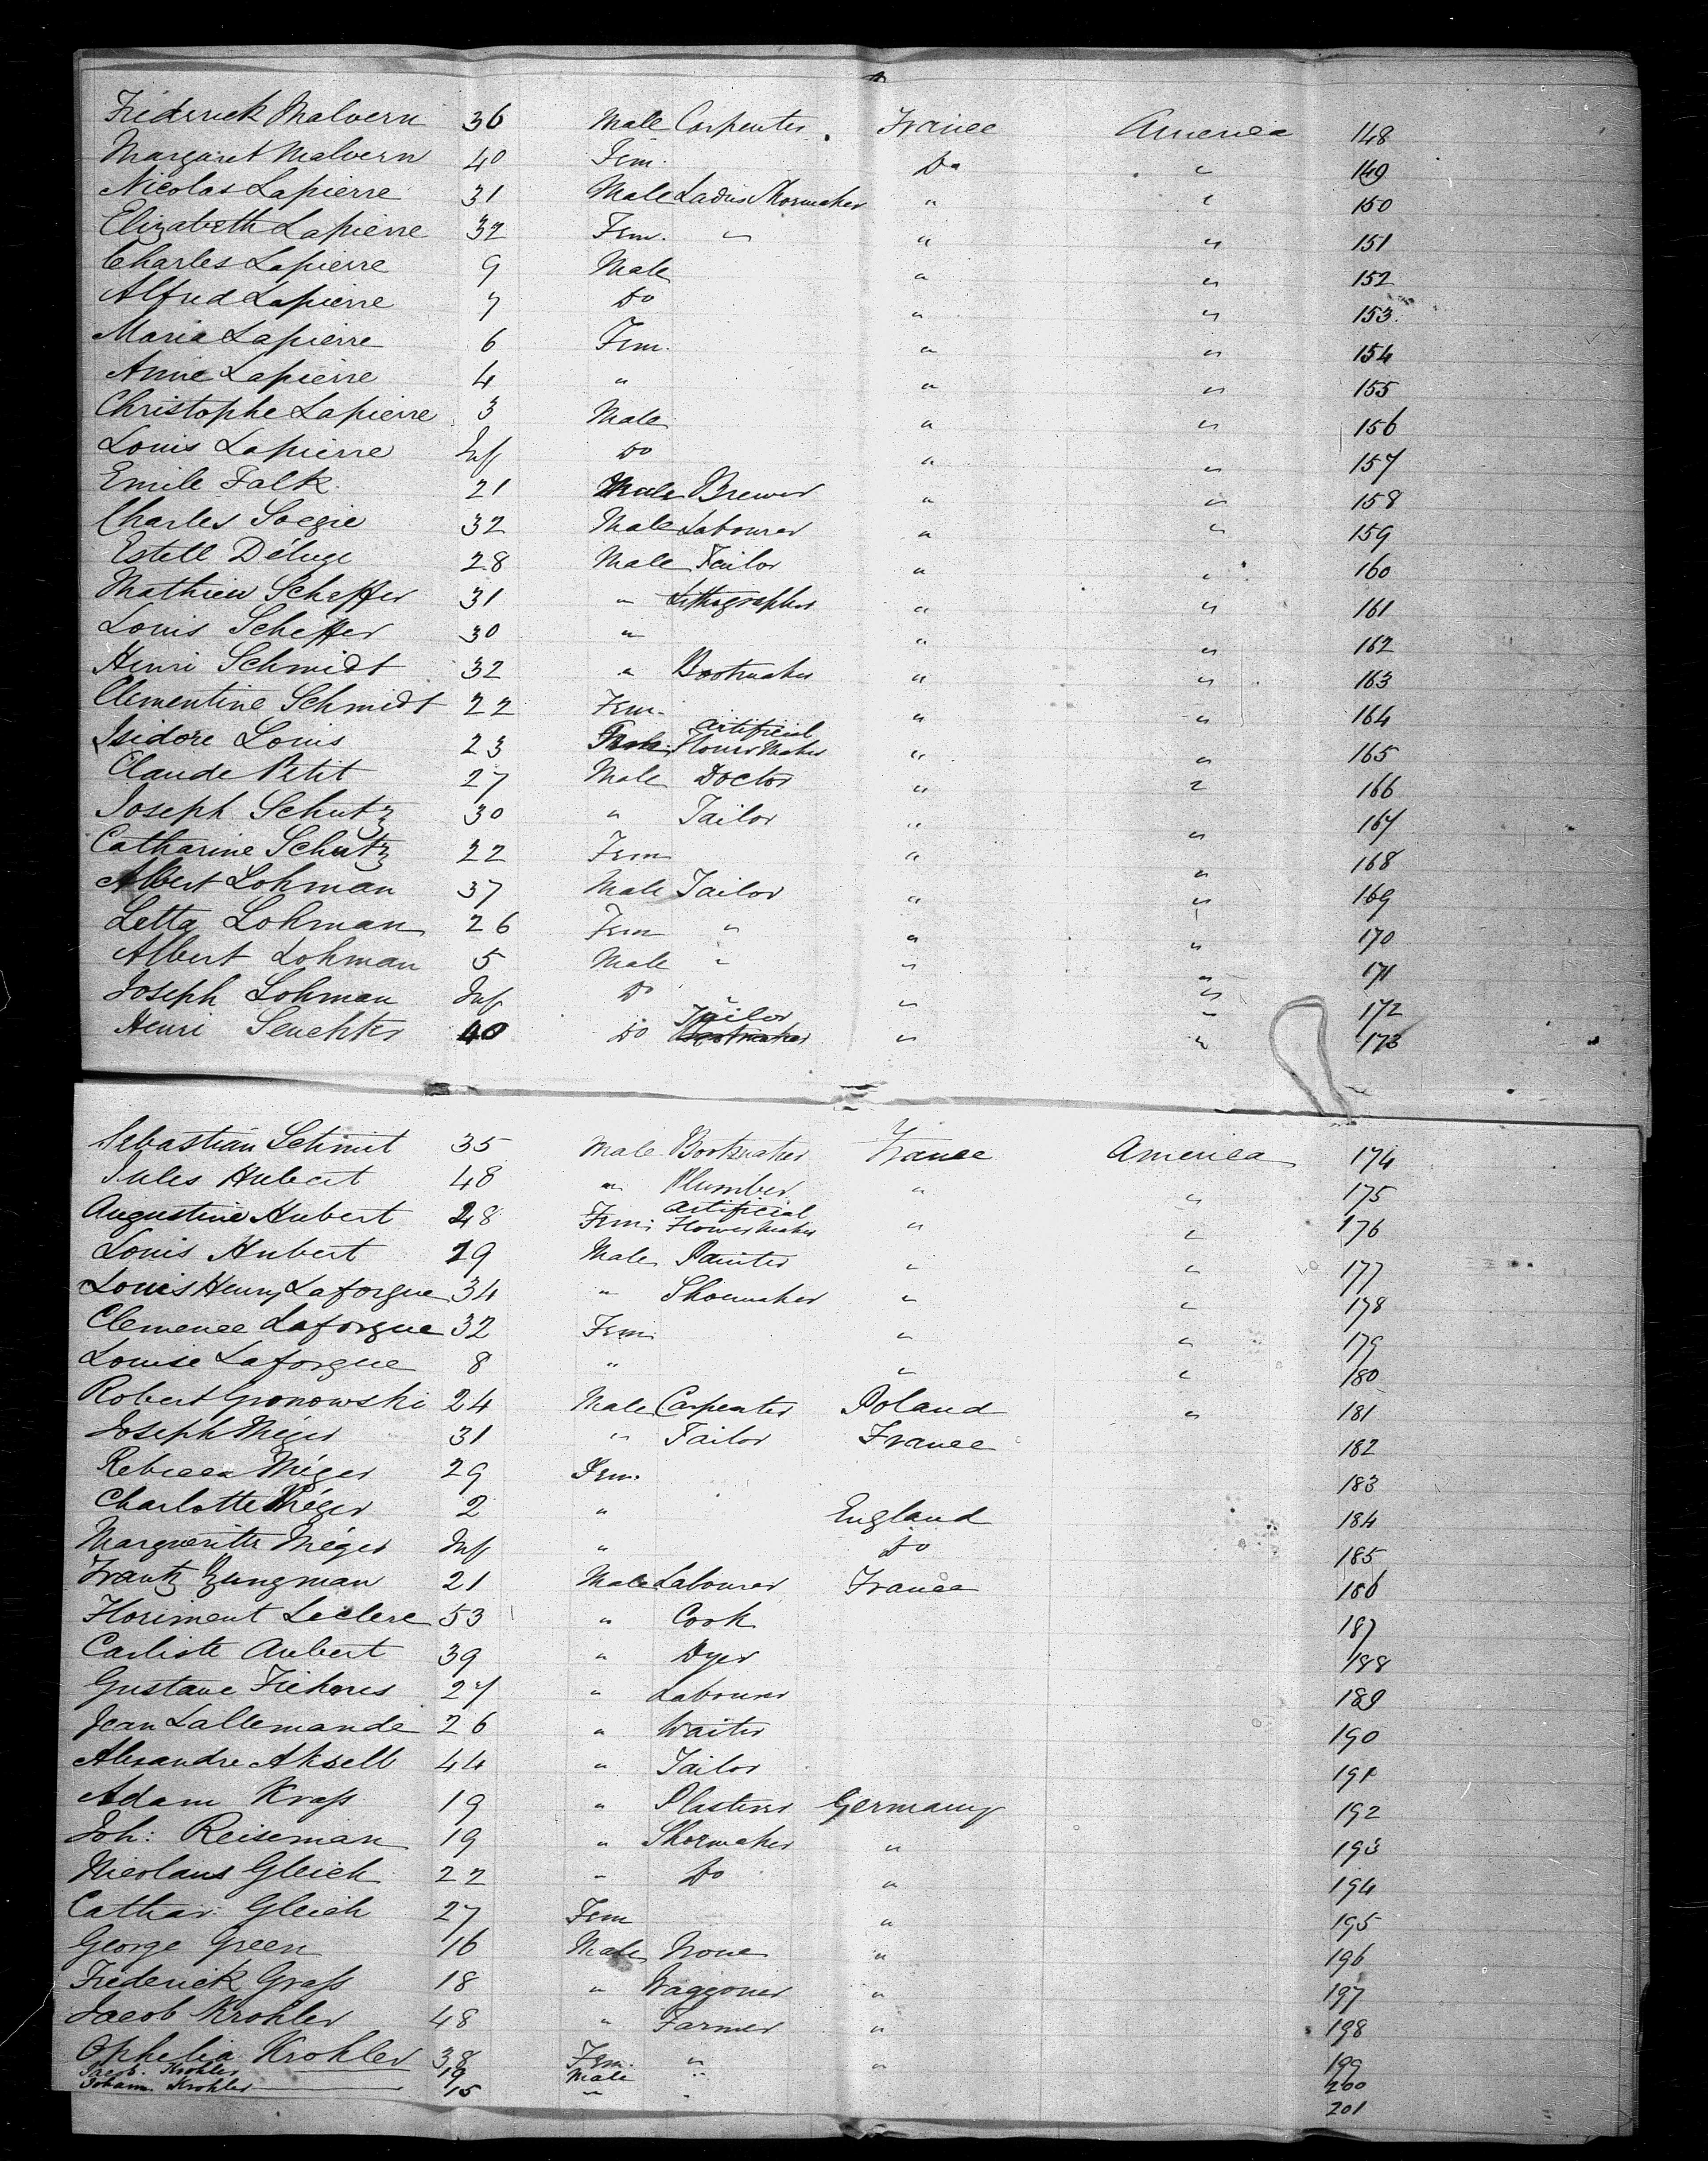 Frederick Malvern 36 Male Carpenter France America 148
Margaret Malvern 40 Fem. Do " 149
Nicolas Lapierre 31 Male Ladies Shoemaker " " 150
Elizabeth Lapierre 32 Fem. " " " 151
Charles Lapierre 9 Male " " 152
Alfred Lapierre 7 Do " " 153
Maria Lapierre 6 Fem. " " 154
Anne Lapierre 4 " " " 155
Christophe Lapierre 3 Male " " 156
Louis Lapierre Inf Do " " 157
Emile Falk 21 Male Brewer " " 158
Charles Soegie 32 Male Labourer " " 159
Estell Déluge 28 Male Tailor " " 160
Mathieu Scheffer 31 " Lithographer " " 161
Louis Scheffer 30 " " " 162
Henri Schmidt 32 " Bootmaker " " 163
Clementine Schmidt 22 Fem. " " 164
Isidore Louis 23 artificial Flower Maker " " 165
Claude Petit 27 Male Doctor " " 166
Joseph Schutz 30 " Tailor " " 167
Catharine Schutz 22 Fem " " 168
Albert Lohman 37 Male Tailor " " 169
Letta Lohman 26 Fem " " " 170
Albert Lohman 5 Male " " " 171
Joseph Lohman Inf Do " " " 172
Henri Seuchter 40 Do Tailor Bootmaker " " 173
Sebastian Schmit 35 Male Bootmaker France America 174
Jules Hubert 48 " Plumber " " 175
Augustine Hubert 28 Fem: artificial Flower Maker " " 176
Louis Hubert 19 Male Painter " " 177
Louis Henry Laforgue 34 " Shoemaker " " 178
Clemence Laforgue 32 Fem. " " 179
Louise Laforgue 8 " " " 180
Robert Gronowski 24 Male Carpenter Poland " 181
Joseph Méger 31 " Tailor France 182
Rebecca Méger 29 Fem. 183
Charlotte Méger 2 " England 184
Margueritte Méger Inf " Do 185
Frantz Zungman 21 Male Labourer France 186
Floriment Leclerc 53 " Cook 187
Carliste Aubert 39 " Dyer 188
Gustave 27 " Labourer 189
Jean Lallemande 26 " Waiter 190
Alexandre Aksell 44 " Tailor 191
Adam Krass 19 " Plasterer Germany 192
Joh: Reiseman 19 " Shoemaker " 193
Nicolaus Gleich 22 " Do " 194
Cathar: Gleich 27 Fem " 195
George Green 16 Male None " 196
Frederick Grass 18 " Waggoner " 197
Jacob Krohler 48 " Farmer " 198
Ophelia Krohler 38 Fem. " " 199
Fred. Krohler 19 Male " 200
Johann Krohler 15 " " 201